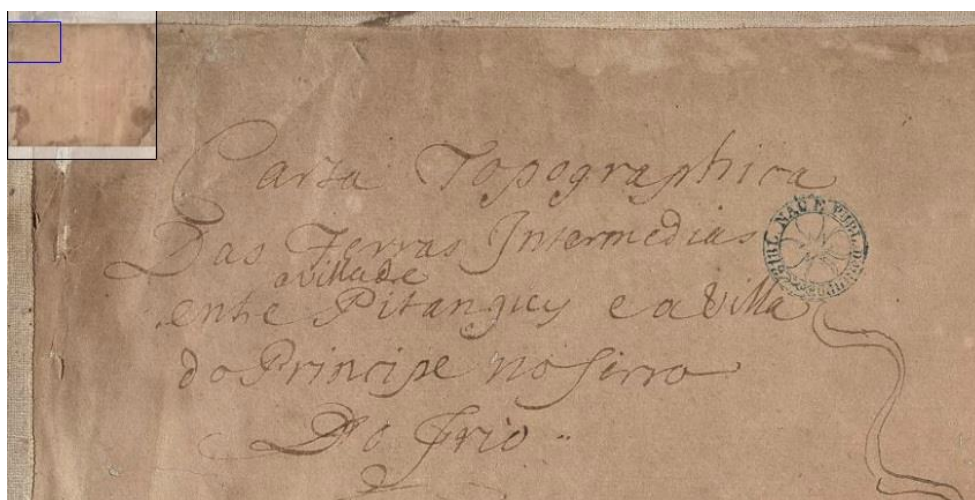 Carta Topographica
Das Terras Intermedias
a villa de
entre Pitanguy e a Villa
do Principe no Serro
Do Frio..
BIBL. NAC E PUBL.